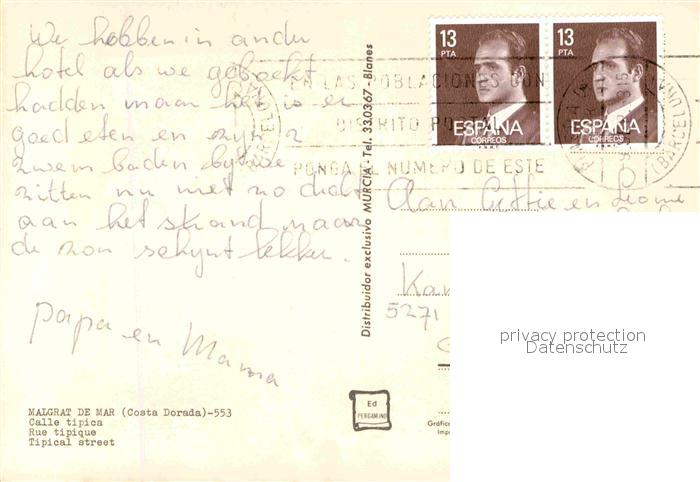 We hebben in ander
hotel als we geboekt
hadden maar het is er
goed eten en zyn 2
zwembaden by we
zitten nu niet zo dicht
aan het strand maar
de zon schynt lekker.
papa en Mama
MALGRAT DE MAR (Costa Dorada)-553
Calle tipica
Rue tipique
Tipical street
Distribuidor exclusivo MURCIA - Tel. 330367 - Blanes
Ed
PERGAMINO
13
PTA
ESPAÑA
CORREOS
13
PTA
ESPAÑA
CORREOS
EN LAS POBLACIONES CON
DISTRITO PO
PONGA EL NUMERO DE ESTE
(BARCELONA)
Aan en
5271
privacy protection
Datenschutz